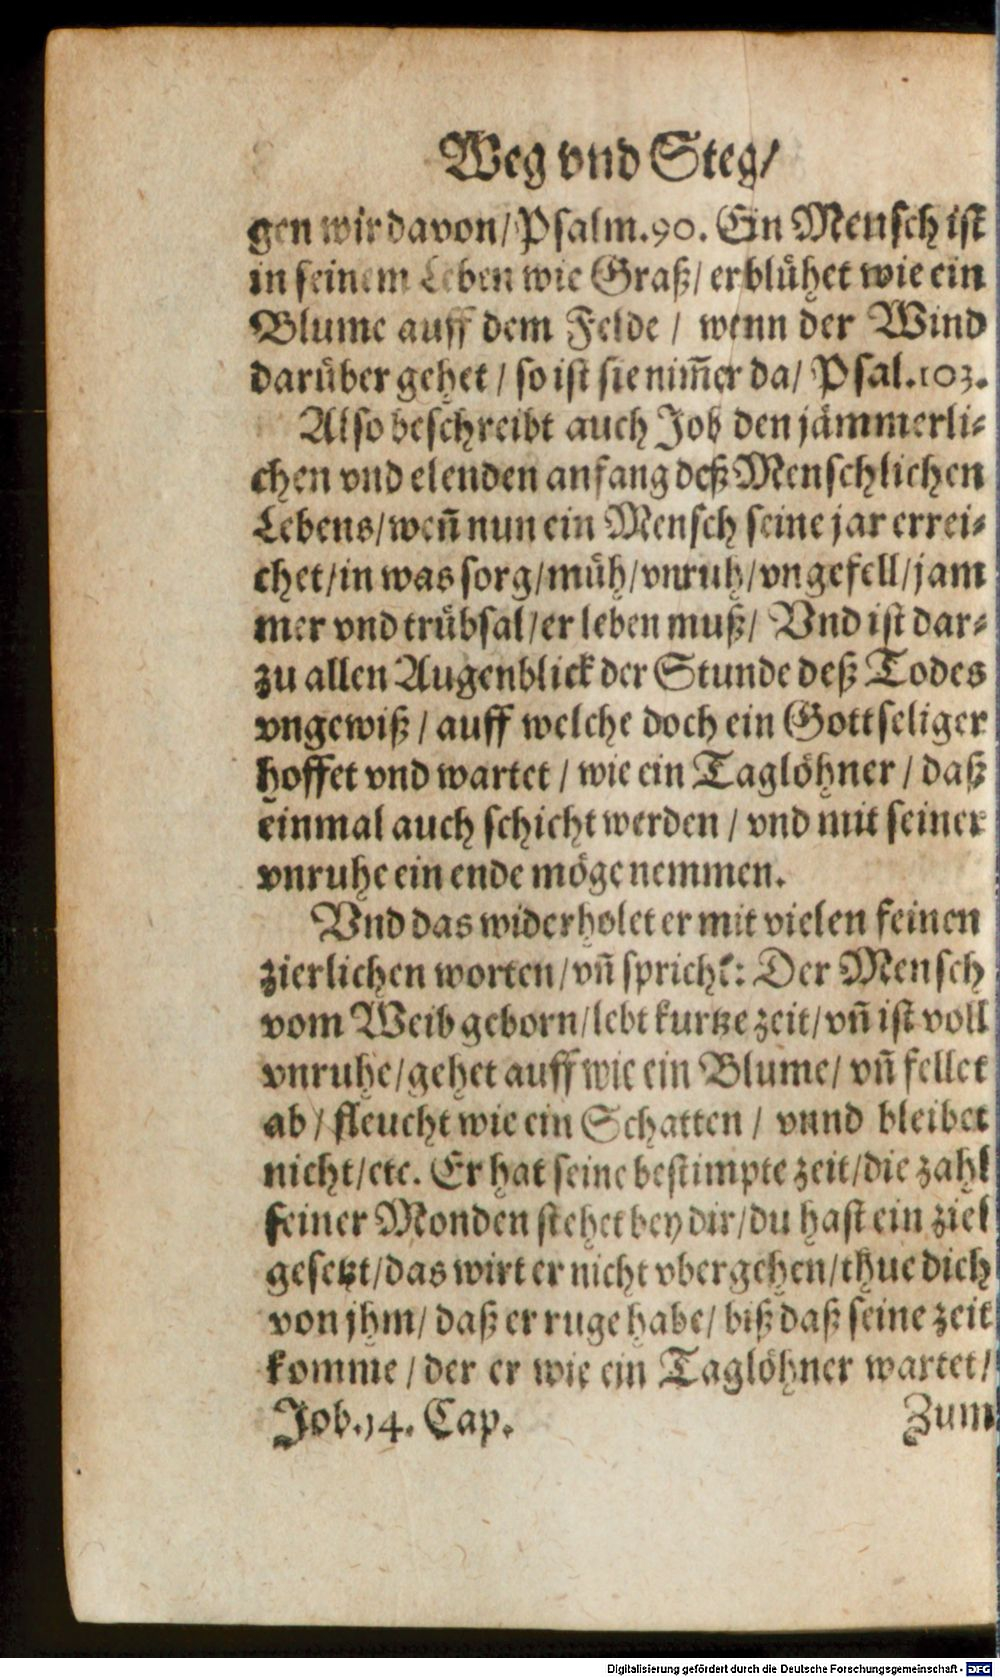 Weg vnd Steg/
gen wir davon/ Psalm.90. Ein Mensch ist
in seinem Leben wie Graß/ er blühet wie ein
Blume auff dem Felde / wenn der Wind
darüber gehet / so ist sie nim̄er da/ Psal.103.
Also beschreibt auch Job den jämmerli⸗
chen vnd elenden anfang deß Menschlichen
Lebens/ weñ nun ein Mensch seine jar errei⸗
chet/ in was sorg/ müh/ vnruh/ vngefell/ jam
mer vnd trübsal/ er leben muß/ Vnd ist dar⸗
zu allen Augenblick der Stunde deß Todes
vngewiß / auff welche doch ein Gottseliger
hoffet vnd wartet / wie ein Taglöhner / daß
einmal auch schicht werden / vnd mit seiner
vnruhe ein ende möge nemmen.
Vnd das widerholet er mit vielen feinen
zierlichen worten/ vñ spricht: Der Mensch
vom Weib geborn/ lebt kurtze zeit/ vñ ist voll
vnruhe/ gehet auff wie ein Blume/ vñ fellet
ab / fleucht wie ein Schatten / vnnd bleibet
nicht/ etc. Er hat seine bestimpte zeit/ die zahl
seiner Monden stehet bey dir/ du hast ein ziel
gesetzt/ das wirt er nicht vbergehen/ thue dich
von jhm/ daß er ruge habe/ biß daß seine zeit
komme / der er wie ein Taglöhner wartet/
Job.14. Cap. Zum
Digitalisierung gefördert durch die Deutsche Forschungsgemeinschaft - DFG